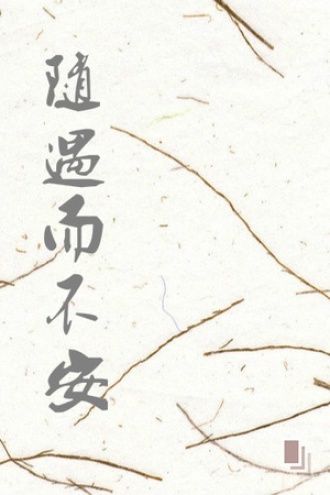 随遇而不安